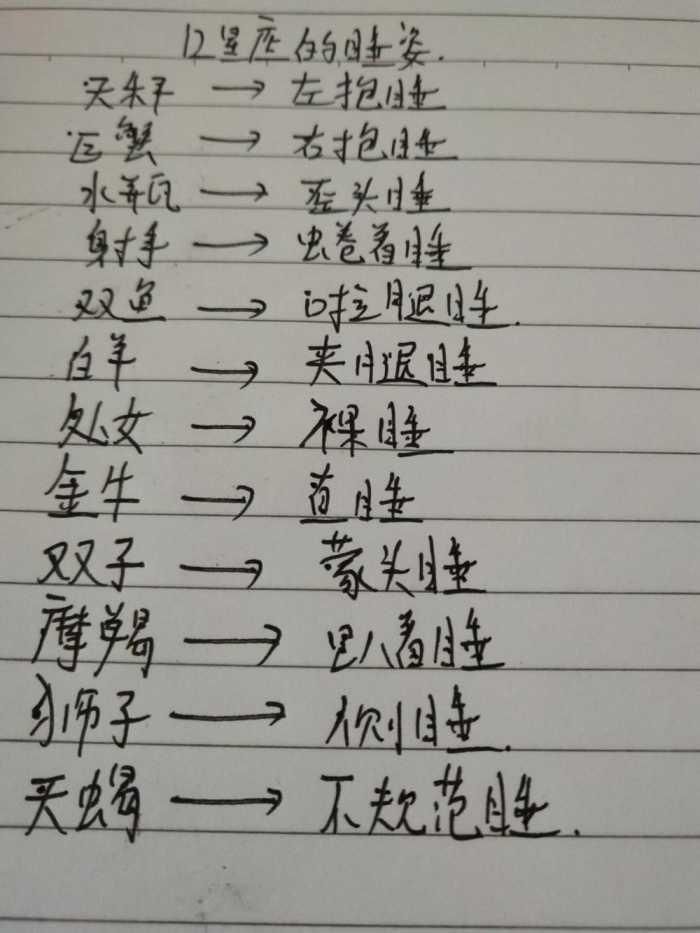 12星座的睡姿.
天秤 → 左抱睡
巨蟹 → 右抱睡
水瓶 → 歪头睡
射手 → 蜷着睡
双鱼 → 腿睡.
白羊 → 夹腿睡
处女 → 裸睡
金牛 → 直睡
双子 → 蒙头睡
摩羯 → 趴着睡
狮子 → 侧睡.
天蝎 → 不规范睡.